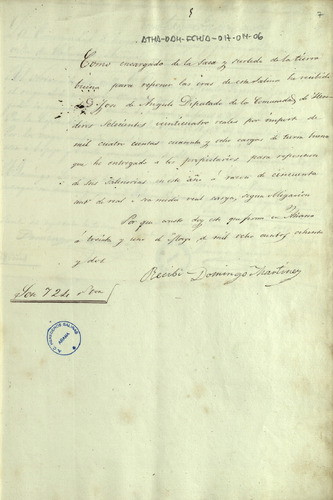 ATHA-DAH-ECHJG-017-04-06
Como encargado de la saca y surtido de la tierra
buena para reponer las eras de esta Salina he recibido
de D. José de Angulo Diputado de la Comunidad de Here
deros setecientos veinticuatro reales por importe de
mil cuatro cientos cuarenta y ocho cargas de tierra buena
que he entregado a los propietarios para reposicion
de sus Salineras en este año á razon de cincuenta
cent. de real ó sea medio real carga, segun obligacion
Por que conste doy este que firmo en Añana
á treinta y uno de Mayo de mil ocho cientos ochenta
y dos
Recibí - Domingo Martinez
Son 724 r. vn